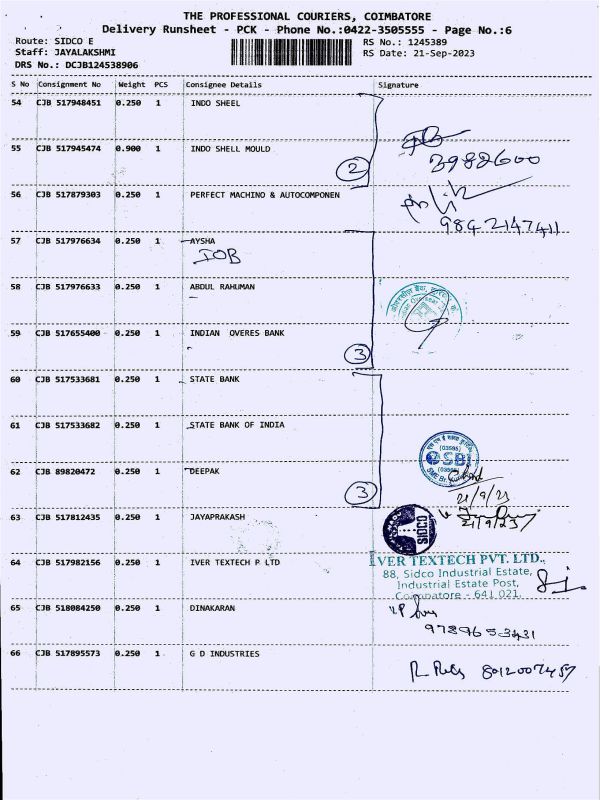 THE PROFESSIONAL COURIERS, COIMBATORE
Delivery Runsheet - PCK - Phone No.:0422-3505555 - Page No.:6
Route: SIDCO E
RS No.: 1245389
Staff: JAYALAKSHMI
RS Date: 21-Sep-2023
DRS No.: DCJB124538906
S No Consignment No Weight PCS Consignee Details Signature
54 CJB 517948451 0.250 1 INDO SHEEL
55 CJB 517945474 0.900 1 INDO SHELL MOULD
2
3982600
56 CJB 517879303 0.250 1 PERFECT MACHINO & AUTOCOMPONEN
9842147411
57 CJB 517976634 0.250 1 AYSHA
IOB
58 CJB 517976633 0.250 1 ABDUL RAHUMAN
59 CJB 517655400 0.250 1 INDIAN OVERES BANK
3
60 CJB 517533681 0.250 1 STATE BANK
61 CJB 517533682 0.250 1 STATE BANK OF INDIA
SBI
62 CJB 89820472 0.250 1 DEEPAK
3
21/9/23
63 CJB 517812435 0.250 1 JAYAPRAKASH
SIDCO
21/9/23
64 CJB 517982156 0.250 1 IVER TEXTECH P LTD
IVER TEXTECH PVT. LTD.,
88, Sidco Industrial Estate,
Industrial Estate Post,
Coimbatore - 641 021.
65 CJB 518084250 0.250 1 DINAKARAN
9789653431
66 CJB 517895573 0.250 1 G D INDUSTRIES
8012007457